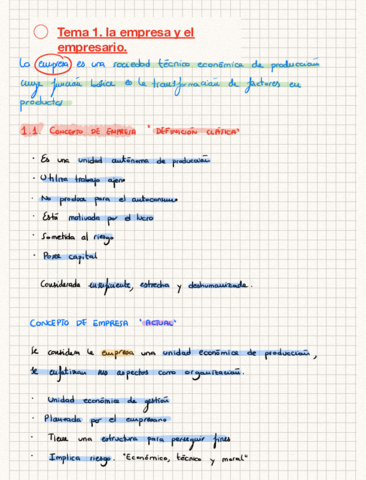 Tema 1. la empresa y el
empresario.
La empresa es una sociedad técnico económica de producción
cuya función básica es la transformación de factores en
productos
1.1 CONCEPTO DE EMPRESA "DEFINICIÓN CLÁSICA"
· Es una unidad autónoma de producción
· Utiliza trabajo ajeno
· No produce para el autoconsumo
· Está motivada por el lucro
· Sometida al riesgo
· Posee capital
Considerada insuficiente, estrecha y deshumanizada.
CONCEPTO DE EMPRESA "ACTUAL"
Se considera la empresa una unidad económica de producción,
se enfatizan sus aspectos como organización.
· Unidad económica de gestión
· Planeada por el empresario
· Tiene una estructura para perseguir fines
· Implica riesgo. "Económico, técnico y moral"